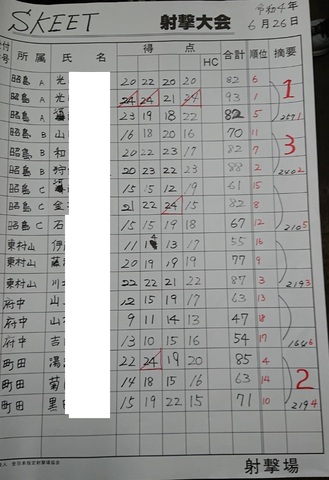 SKEET 射撃大会 令和4年
6月26日
付号 所属 氏名 得点 HC 合計 順位 摘要
昭島 A 光 20 22 20 20 82 6
昭島 A 光 24 24 21 24 93 1 1
昭島 A 23 19 18 22 82 5
昭島 B 山 16 18 20 16 70 11
昭島 B 和 20 22 23 17 82 7 3
昭島 B 20 23 22 23 88 2 2402
昭島 C 15 15 12 19 61 15
昭島 C 金 21 22 24 15 82 8
昭島 C 石 15 15 19 18 67 12 2105
東村山 伊 11 14 13 17 55 16
東村山 20 19 19 19 77 9
東村山 川 22 22 21 22 87 3 2193
府中 山 12 15 19 17 63 13
府中 山 9 11 14 13 47 18
府中 吉 13 10 15 16 54 17 1646
町田 湯 22 24 19 20 85 4
町田 菊 14 18 15 16 63 14 2
町田 黒 15 19 22 15 71 10 2194
射撃場